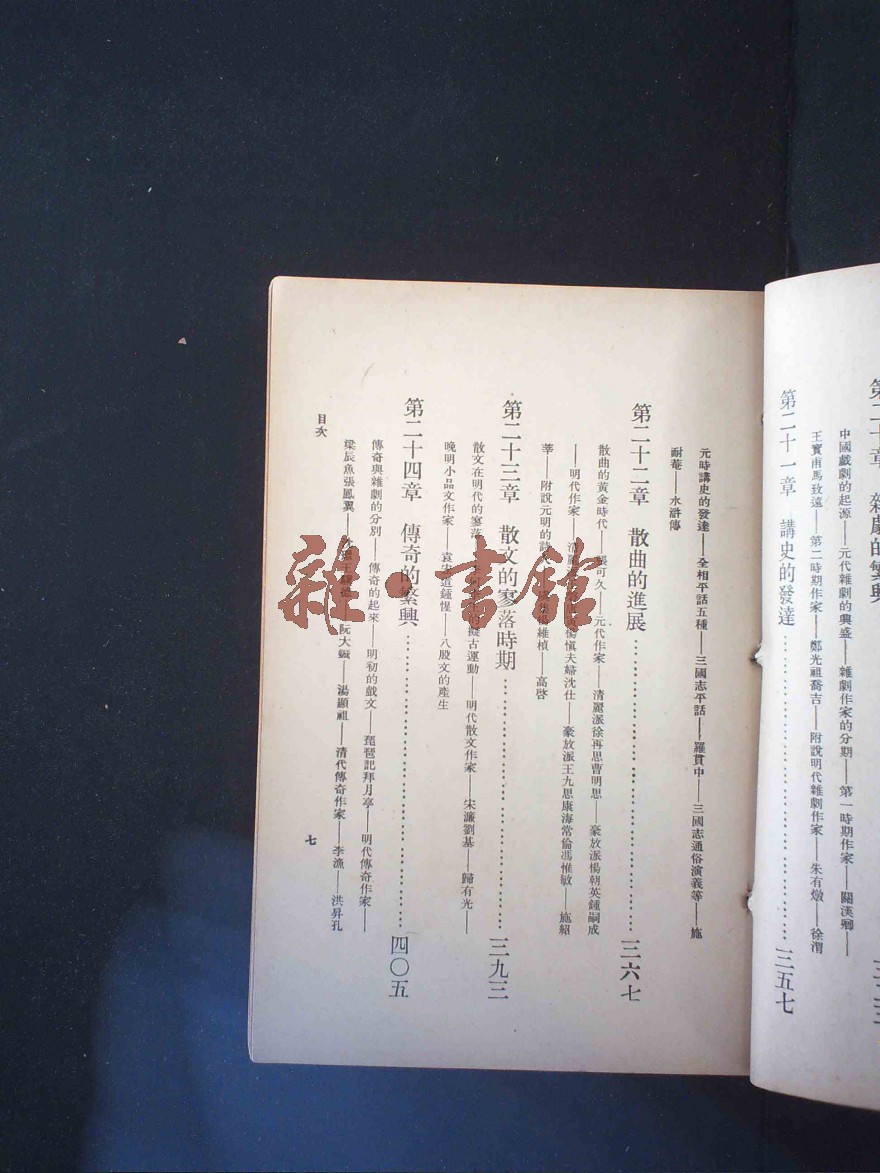 第二十章 雜劇的繁興
中國戲劇的起源——元代雜劇的興盛——雜劇作家的分期——第一時期作家——關漢卿——
王實甫馬致遠——第二時期作家——鄭光祖喬吉——附說明代雜劇作家——朱有燉——徐渭
第二十一章 講史的發達……三五七
元時講史的發達——全相平話五種——三國志平話——羅貫中——三國志通俗演義等——施
耐菴——水滸傳
第二十二章 散曲的進展……三六七
散曲的黃金時代——張可久——元代作家——清麗派徐再思曹明思——豪放派楊朝英鍾嗣成
——明代作家——清麗楊愼夫婦沈仕——豪放派王九思康海常倫馮惟敏——施紹
莘——附說元明的詩維楨——高啓
第二十三章 散文的寥落時期……三九三
散文在明代的寥落擬古運動——明代散文作家——宋濂劉基——歸有光——
晚明小品文作家——袁宏道鍾惺——八股文的產生
第二十四章 傳奇的繁興……四〇五
傳奇與雜劇的分別——傳奇的起來——明初的戲文——琵琶記拜月亭——明代傳奇作家——
梁辰魚張鳳翼——阮大鋮——湯顯祖——清代傳奇作家——李漁——洪昇孔
目次
七
雜·書館